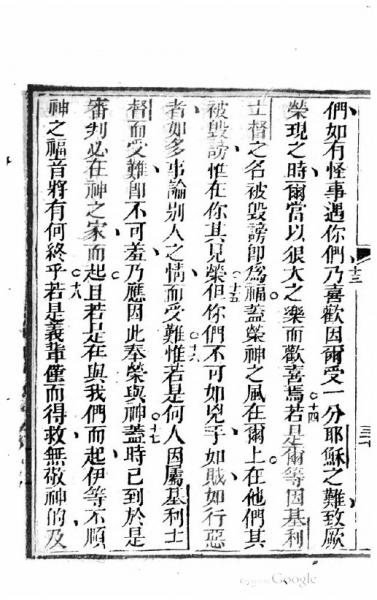 們如有怪事遇你們乃喜歡因爾受一分耶穌之難致厥
十三
榮現之時爾當以很大之樂而歡喜焉若是爾等因基利
十四
士督之名被毀謗卽為福蓋榮神之風在爾上在他們其
被毀謗惟在你其見榮但你們不可如兇手如賊如行惡
十五
者如多事論別人之情而受難惟若是何人因屬基利士
十六
督而受難卽不可羞乃應因此奉榮與神蓋時已到於是
十七
審判必在神之家而起且若是在與我們而起伊等不順
神之福音將有何終乎若是義輩僅而得救無敬神的及
十八
三十
Google